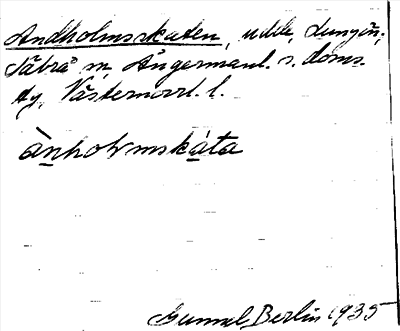 Andholmskaten, udde, Lungön,
Säbrå sn, Ångermanl. s. doms.
dg, Västernorrl. l.
ànhoḷmskáta
Gunnel Berlin 1935